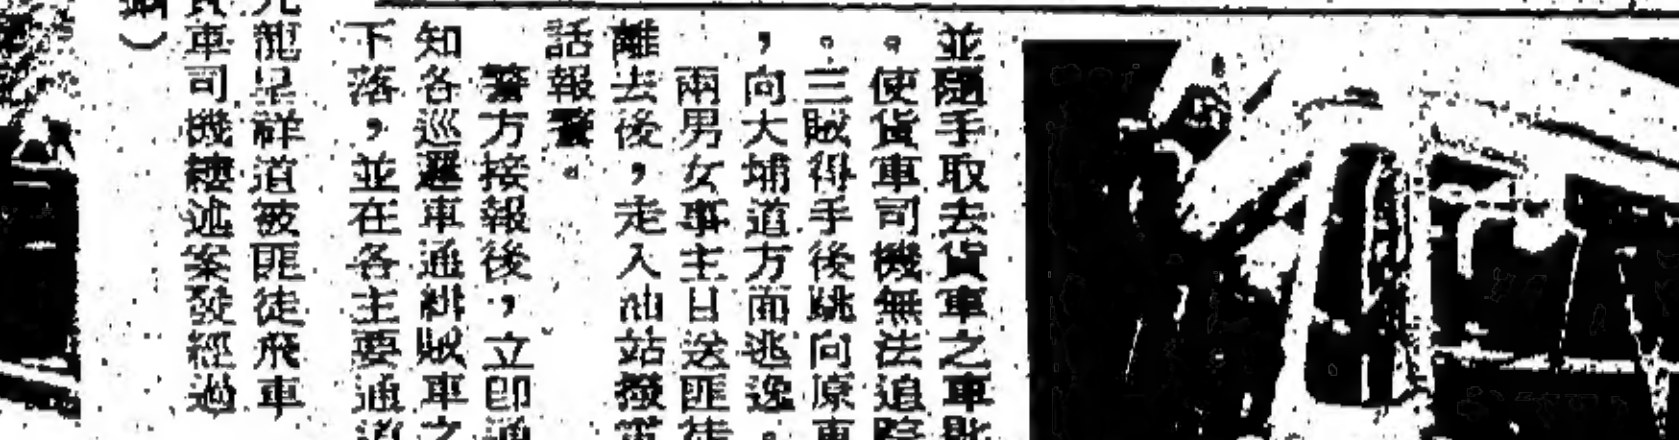 並隨手取去貨車之車匙
。使貨車司機無法追踪
。三賊得手後跳向原車
，向大埔道方面逃逸。
兩男女事主目送匪徒
離去後，走入油站撥電
話報警。
警方接報後，立即通
知各巡邏車通緝賊車之
下落，並在各主要通道
龍呈祥道被匪徒飛車
車司機縷述案發經過
）